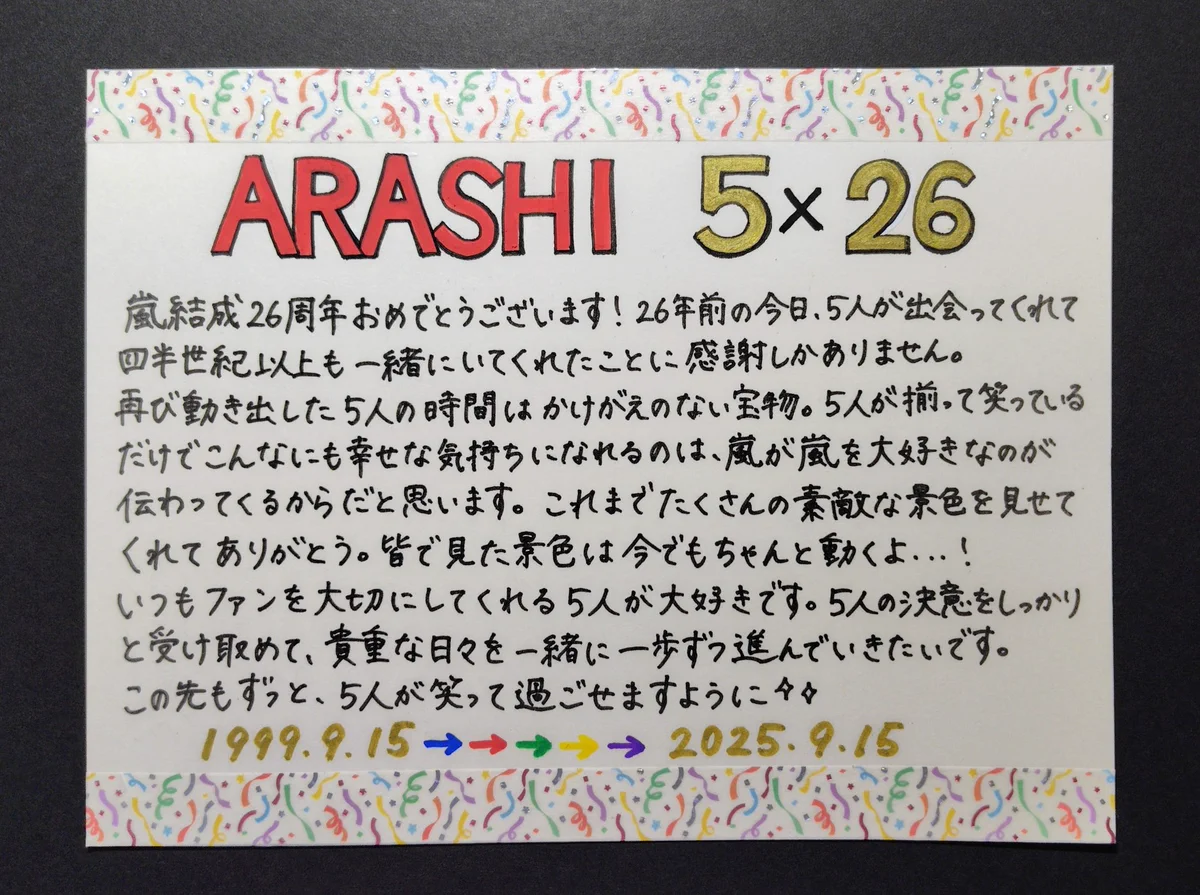 ARASHI 5×26
嵐結成26周年おめでとうございます！26年前の今日、5人が出会ってくれて
四半世紀以上も一緒にいてくれたことに感謝しかありません。
再び動き出した5人の時間はかけがえのない宝物。5人が揃って笑っている
だけでこんなにも幸せな気持ちになれるのは、嵐が嵐を大好きなのが
伝わってくるからだと思います。これまでたくさんの素敵な景色を見せて
くれてありがとう。皆で見た景色は今でもちゃんと動くよ...！
いつもファンを大切にしてくれる5人が大好きです。5人の決意をしっかり
と受け取めて、貴重な日々を一緒に一歩ずつ進んでいきたいです。
この先もずっと、5人が笑って過ごせますように✧✧
1999.9.15→→→→→2025.9.15